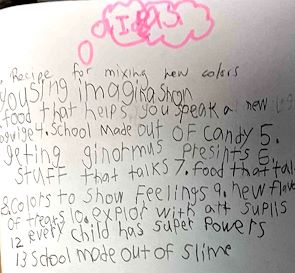 Ideas.
. Recipe for mixing new colors
yousing imagination
food that helps you speak a new
4. School made out OF Candy 5.
geting ginormus presints 6.
stuff that talks 7. food that tal
8. colors to show feelings 9. new flav
of treats 10. explor with art suplis
12 every child has super powers
13 School made out of slime